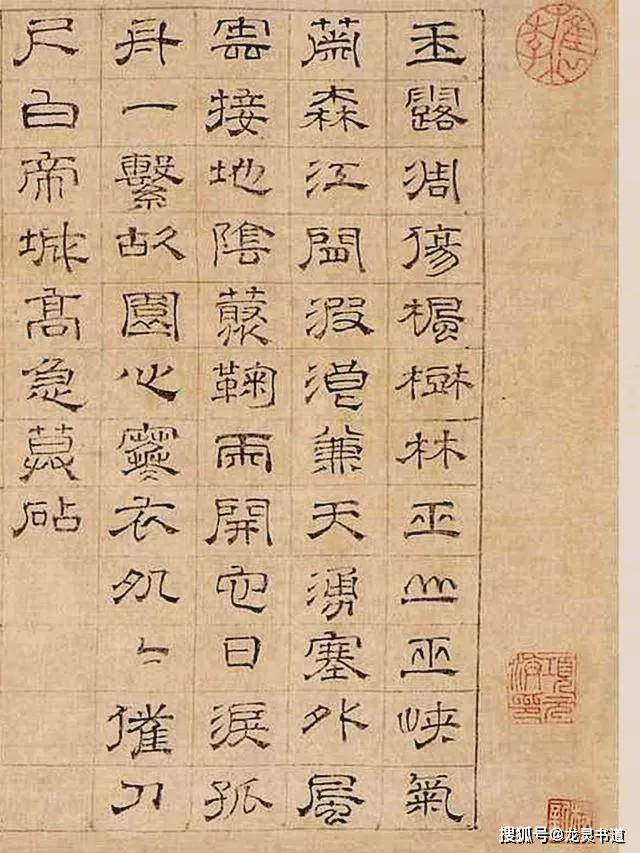 玉露凋傷楓樹林巫山巫峽氣
蕭森江間波浪兼天湧塞外風
雲接地陰藂鞠兩開它日淚孤
舟一繫故園心寒衣処〻催刀
尺白帝城髙急暮砧
搜狐号@龙灵书道